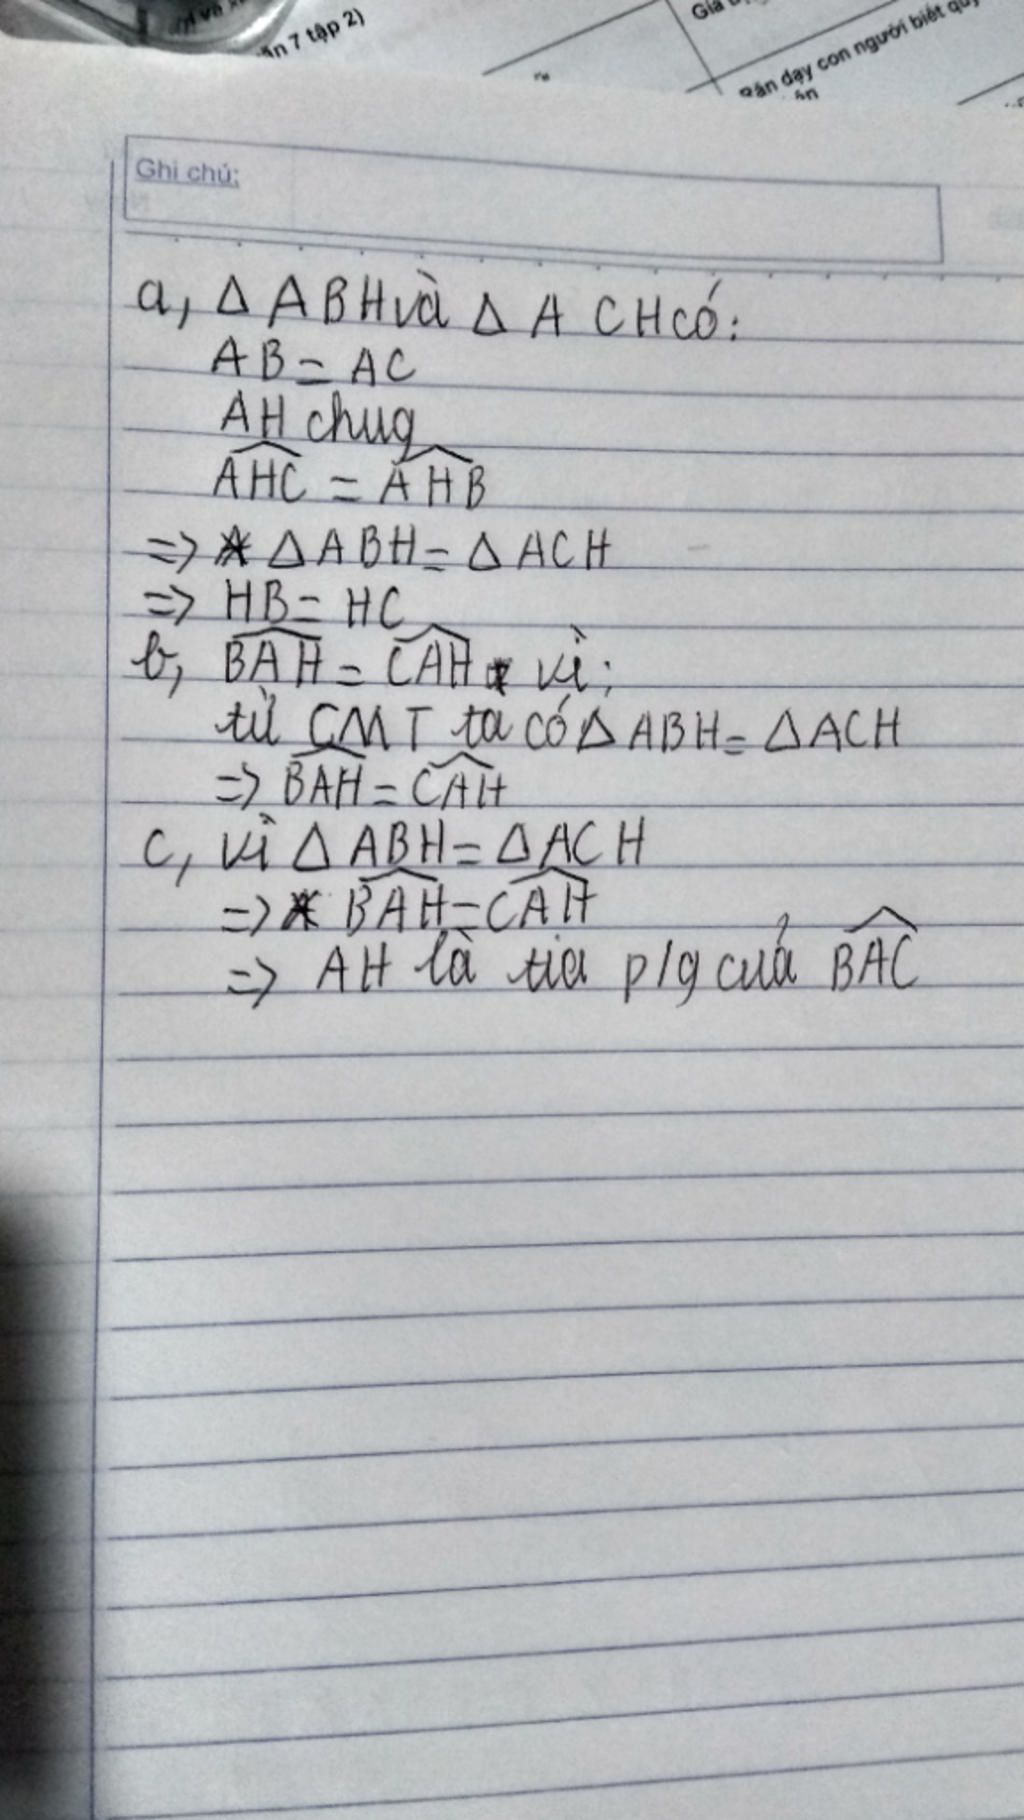 7 tập 2)
Giá
dạy con người biết
Ghi chú:
a, Δ ABH và Δ ACH có:
AB = AC
AH chug
\widehat{AHC} = \widehat{AHB}
=> Δ ABH = Δ ACH
=> HB = HC
b, \widehat{BAH} = \widehat{CAH} vì:
từ CMT ta có Δ ABH = Δ ACH
=> \widehat{BAH} = \widehat{CAH}
c, vì Δ ABH = Δ ACH
=> \widehat{BAH} = \widehat{CAH}
=> AH là tia p/g của \widehat{BAC}